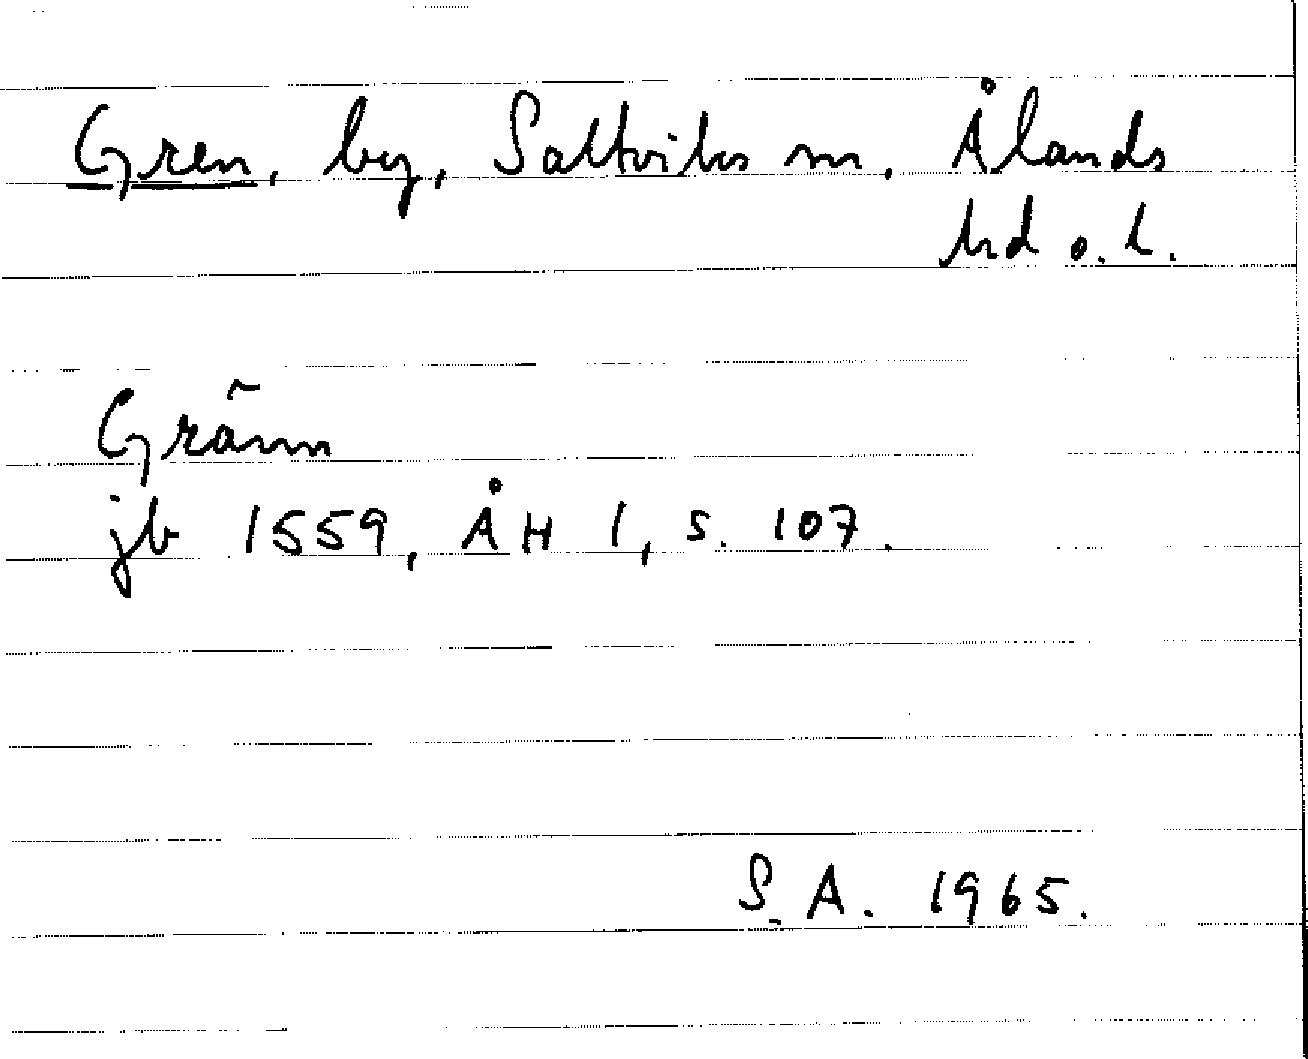 Gren, by, Saltviks sn, Ålands
hd o. l.
Gränn
jb 1559, ÅH 1, s. 107.
S. A. 1965.